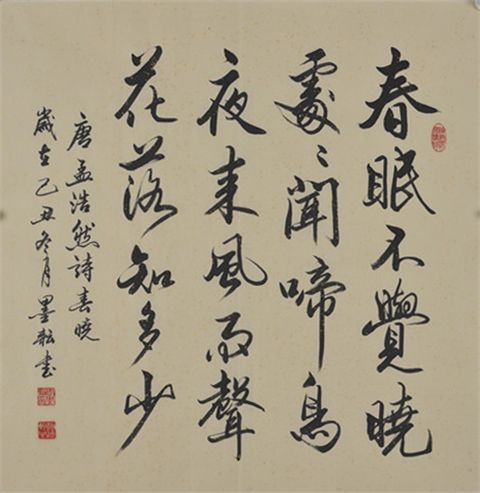 春眠不覺曉
處々聞啼鳥
夜来風雨聲
花落知多少
唐孟浩然詩春曉
歲在己丑冬月墨耘書